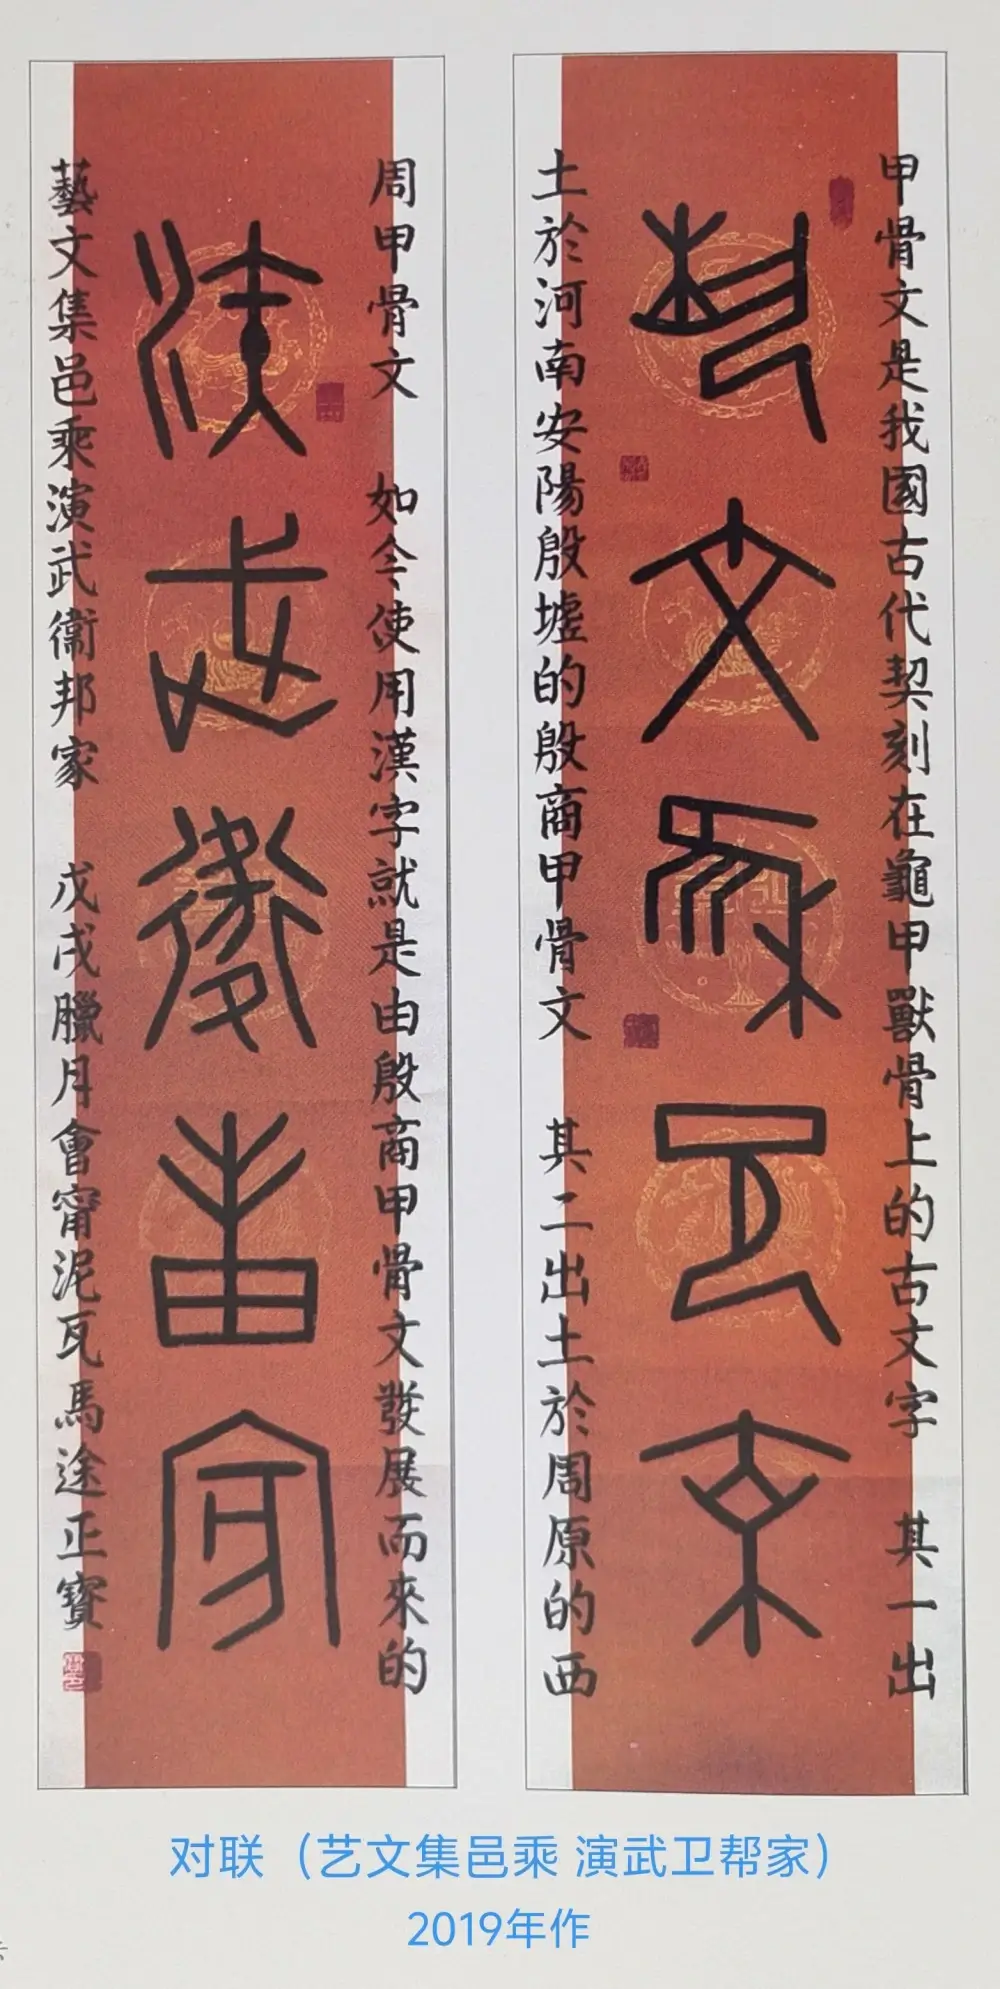 甲骨文是我國古代契刻在龜甲獸骨上的古文字 其一出
藝文集邑乘
土於河南安陽殷墟的殷商甲骨文 其二出土於周原的西
周甲骨文 如今使用漢字就是由殷商甲骨文發展而來的
演武衞邦家
藝文集邑乘演武衞邦家 戊戌臘月會甯泥瓦馬途正寶
对联（艺文集邑乘 演武卫帮家）
2019年作